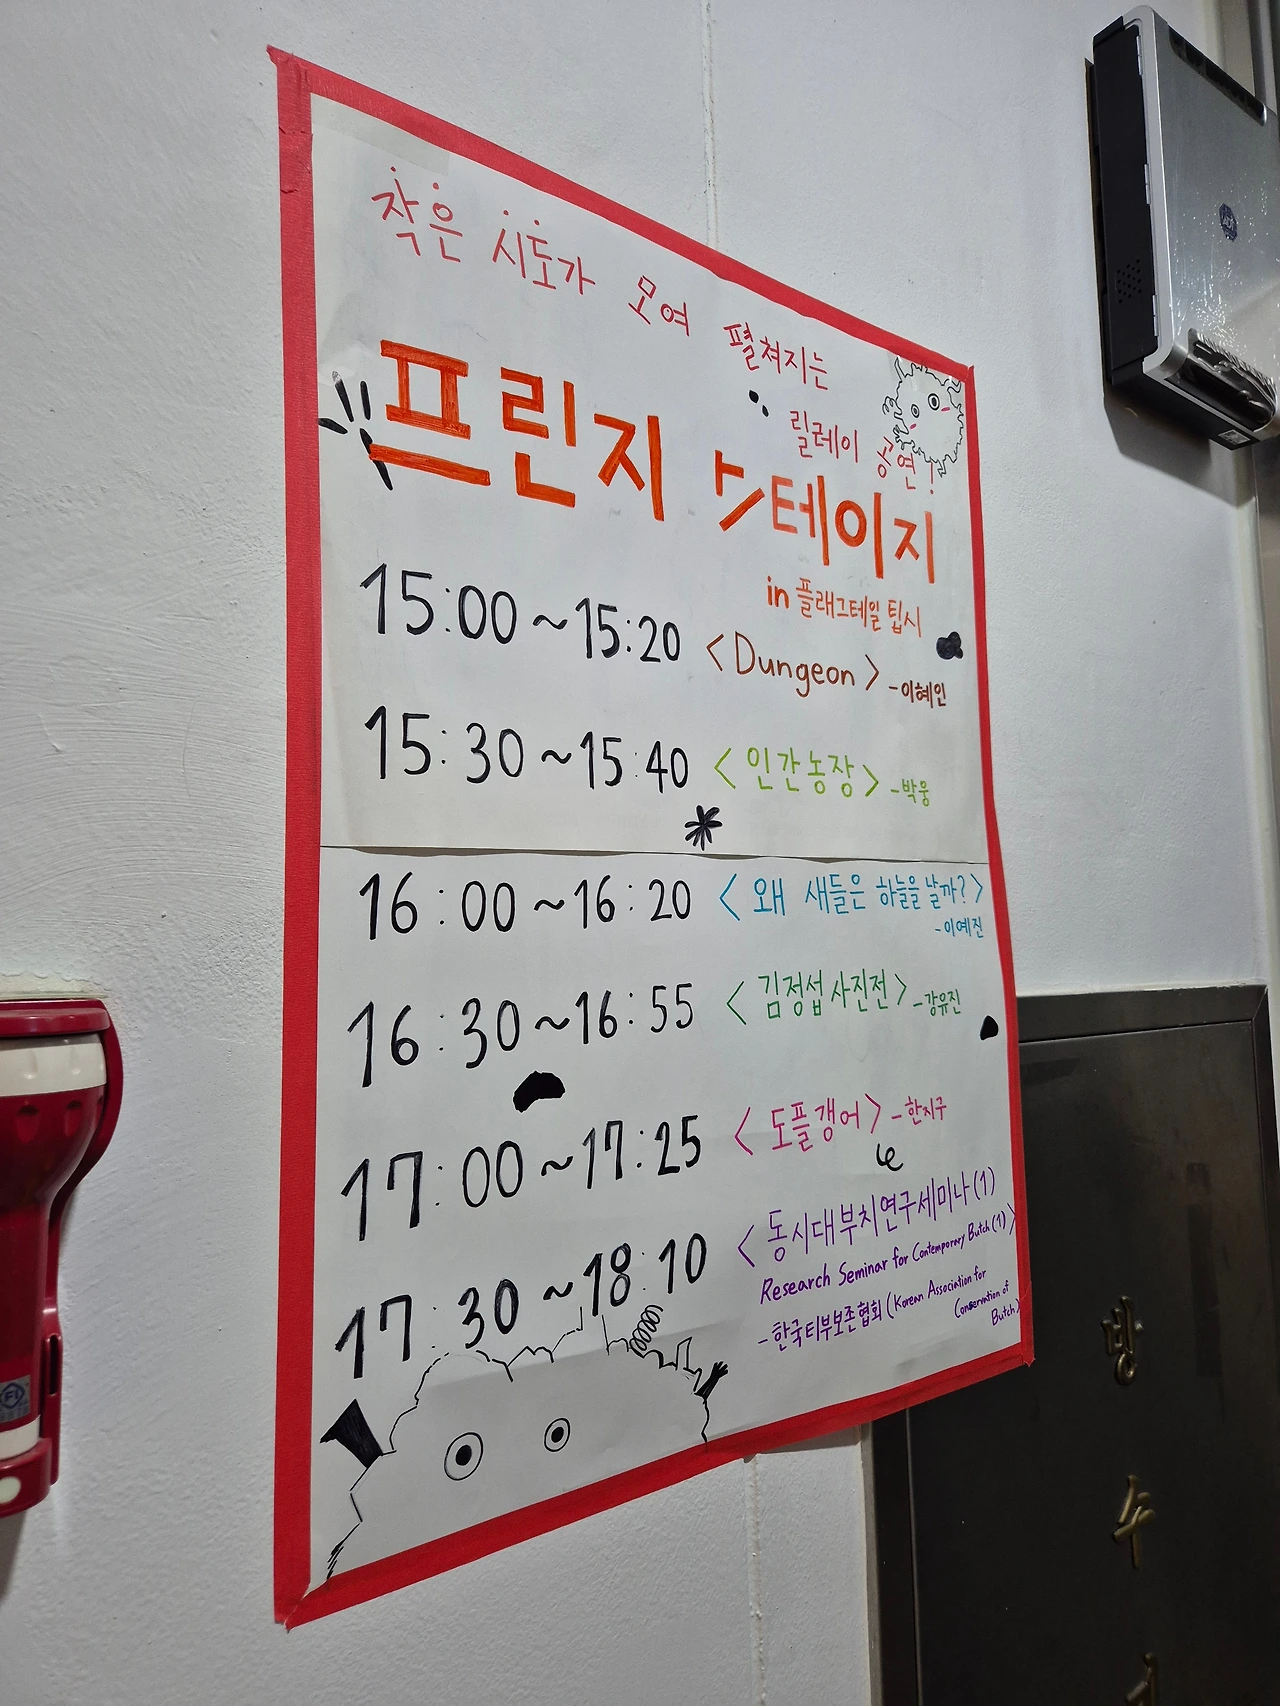 작은 시도가 모여 펼쳐지는
릴레이 공연!
프린지 스테이지
in 플래그테일 팁시
15:00~15:20 <Dungeon> -이혜인
15:30~15:40 <인간농장> -박웅
16:00~16:20 <왜 새들은 하늘을 날까?>
-이예진
16:30~16:55 <김정섭 사진전> -강유진
17:00~17:25 <도플갱어> -한지구
17:30~18:10 <동시대부치연구세미나(1)
Research Seminar for Contemporary Butch(1)>
-한국티부보존협회(Korean Association for
Conservation of
Butch)
방
수